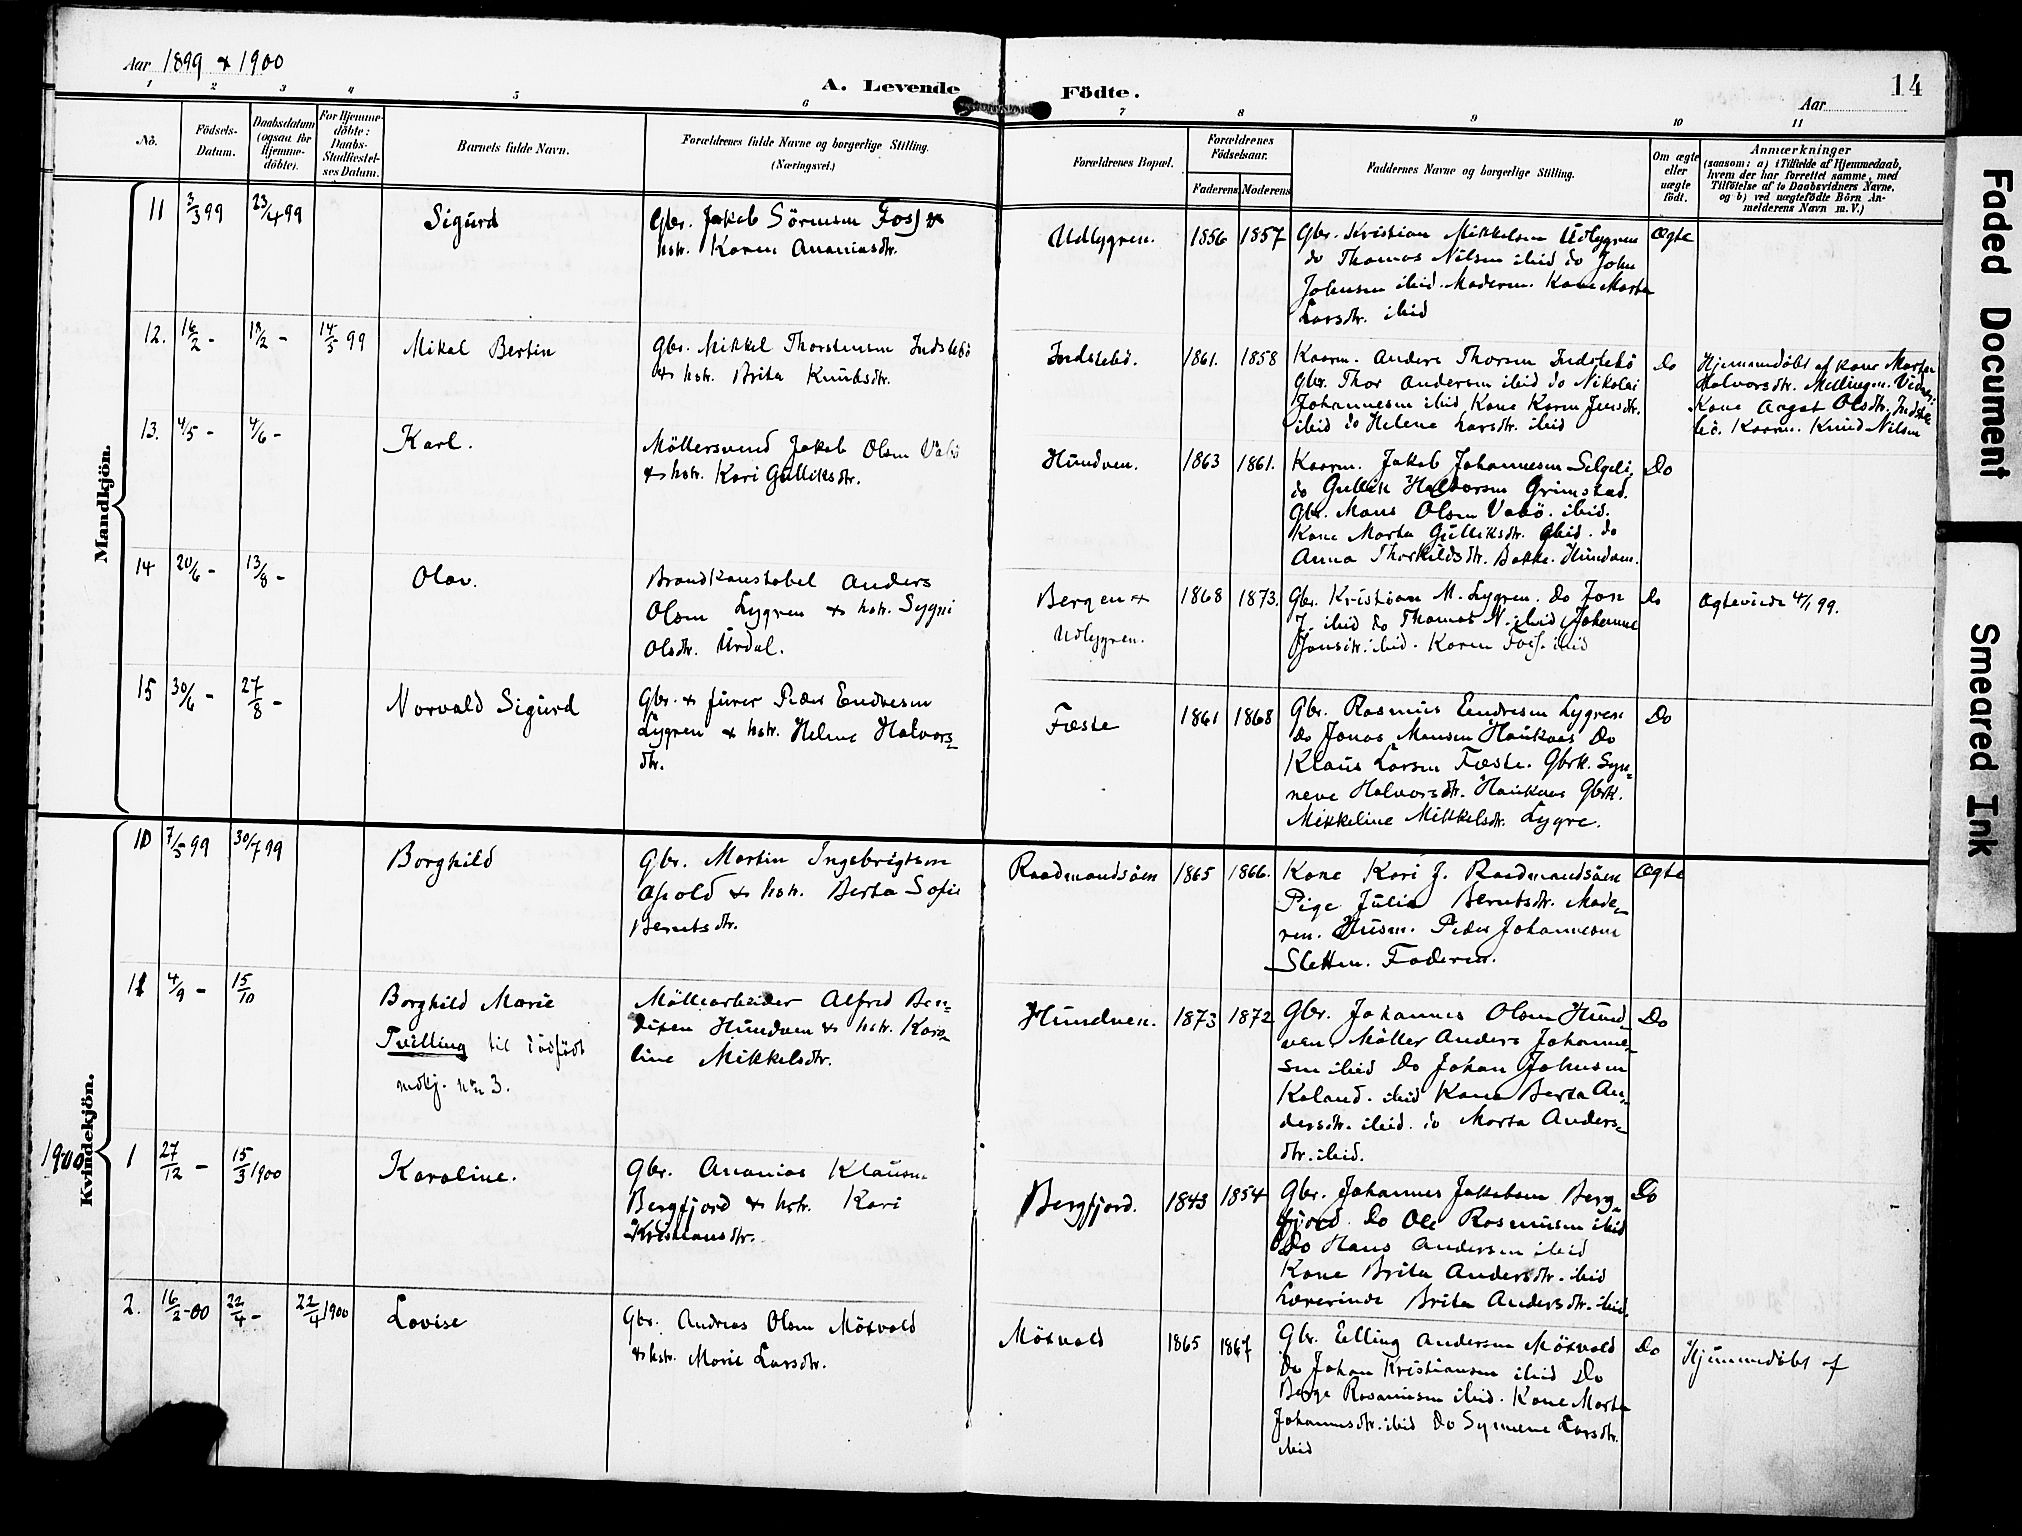 Aar 1899 & 1900
A. Levende Födte.
14
Aar
1 2 3 4 5 6 7 8 9 10 11
No.
Födsels-Datum.
Daabsdatum (ogsaa for Hjemme-döbte).
For Hjemme-döbte: Daabs-Stadfæstel-ses Datum.
Barnets fulde Navn.
Forældrenes fulde Navne og borgerlige Stilling.
(Næringsvei.)
Forældrenes Bopæl.
Forældrenes Födselsaar.
Faderens Moderens
Faddernes Navne og borgerlige Stilling.
Om ægte eller uægte født.
Anmærkninger
(saasom: a) i Tilfælde af Hjemmedaab,
hvem der har forrettet samme, med
Tilföielse af to Daabsvidners Navne.
og b) ved uægtefødte Börn An-
melderens Navn m. V.)
Mandkjön.
11 3/3 99 23/4 99 Sigurd
Gbr. Jakob Sörensen Foss &
hstr. Karen Ananiasdtr.
Udlygren. 1856 1857
Gbr. Kristian Mikkelsen Udlygren
do Thomas Nilsen ibid do John
Johnsen ibid. Moderen. Kone Marta
Larsdtr. ibid
Ægte
12. 16/2 - 18/2 - 14/5 99 Mikal Bertin
Gbr. Mikkel Thorstensen Indstebö
& hstr. Brita Knutsdtr.
Indstebö. 1861. 1858
Kaarm. Anders Thorsen Indstebö
Gbr. Thor Andersen ibid do Nikolai
Johannesen ibid Kone Karen Jensdtr.
ibid do Helene Larsdtr. ibid
Do
Hjemmedöbt af Kone Marta
Halvorsdtr. Mellingen. Vidner:
Kone Aagot Olsdtr. Indste-
bö. Kaarm. Knud Nilsen
13. 4/5 - 4/6 - Karl.
Möllersvend Jakob Olsen Vabö
& hstr. Kari Gulliksdtr.
Hundven. 1863 1861.
Kaarm. Jakob Johannesen Selgeli.
do Gullik Halvorsen Grimstad.
Gbr. Mons Olsen Vabö. ibid.
Kone Marta Gulliksdtr. ibid. do
Anna Thorkildsdtr. Bakke. Hundven.
Do
14 20/6 - 13/8 - Olav.
Brandkonstabel Anders
Olsen Lygren & hstr. Sygni
Olsdtr. Urdal.
Bergen &
Udlygren. 1868 1873.
Gbr. Kristian M. Lygren. Do Jon
J. ibid do Thomas N. ibid Johanne
Jonsdtr. ibid. Karen Foss. ibid
Do
Ægteviede 4/1 99.
15 30/6 - 27/8 - Norvald Sigurd
Gbr. & furer Peder Endresen
Lygren & hstr. Helene Halvors-
dtr.
Fæste 1861 1868
Gbr. Rasmus Endresen Lygren
Do Jonas Monsen Haukaas Do
Klaus Larsen Fæste. Gbrk. Syn-
neve Halvorsdtr. Haukaas Gbrk.
Mikkeline Mikkelsdtr. Lygre.
Do
Kvindekjön.
10 7/5 99 30/7 99 Borghild
Gbr. Martin Ingebrigtsen
Apold & hstr. Berta Sofie
Berntsdtr.
Raadmandsöen 1865 1866.
Kone Kari J. Raadmandsöen
Pige Julia Berntsdtr. Mode-
ren. Husm. Peder Johannesen
Sletten. Faderen.
Ægte
11 4/9 - 15/10 Borghild Marie
Tvilling til dödfödt
mdkj. no 3.
Möllearbeider Alfred Ben-
dixen Hundven & hstr. Karo-
line Mikkelsdtr.
Hundven. 1873 1872
Gbr. Johannes Olsen Hund-
ven. Möller Anders Johanne-
sen ibid Do Johan Johnsen
Kaland. ibid Kone Berta An-
dersdtr. ibid. do Marta Anders-
dtr. ibid.
Do
1900 1 27/12 - 15/3 1900 Karoline.
Gbr. Ananias Klausen
Bergfjord & hstr. Kari
Kristiansdtr.
Bergfjord. 1843 1854
Gbr. Johannes Jakobsen Berg-
fjord. Do Ole Rasmusen ibid
Do Hans Andersen ibid
Kone Brita Andersdtr. ibid
Lærerinde Brita Andersdtr. ibid.
Do
2. 16/2 - 00 22/4 - 22/4 1900 Lovise
Gbr. Andreas Olsen Möxvold
& hstr. Marie Larsdtr.
Möxvold 1865 1867
Gbr. Elling Andersen Möxvold
Do Johan Kristiansen ibid Do
Berge Rasmusen ibid. Kone Marta
Johannesdtr. ibid Do Synneve Larsdtr.
ibid
Do
Hjemmedöbt af
Faded Document
Smeared Ink